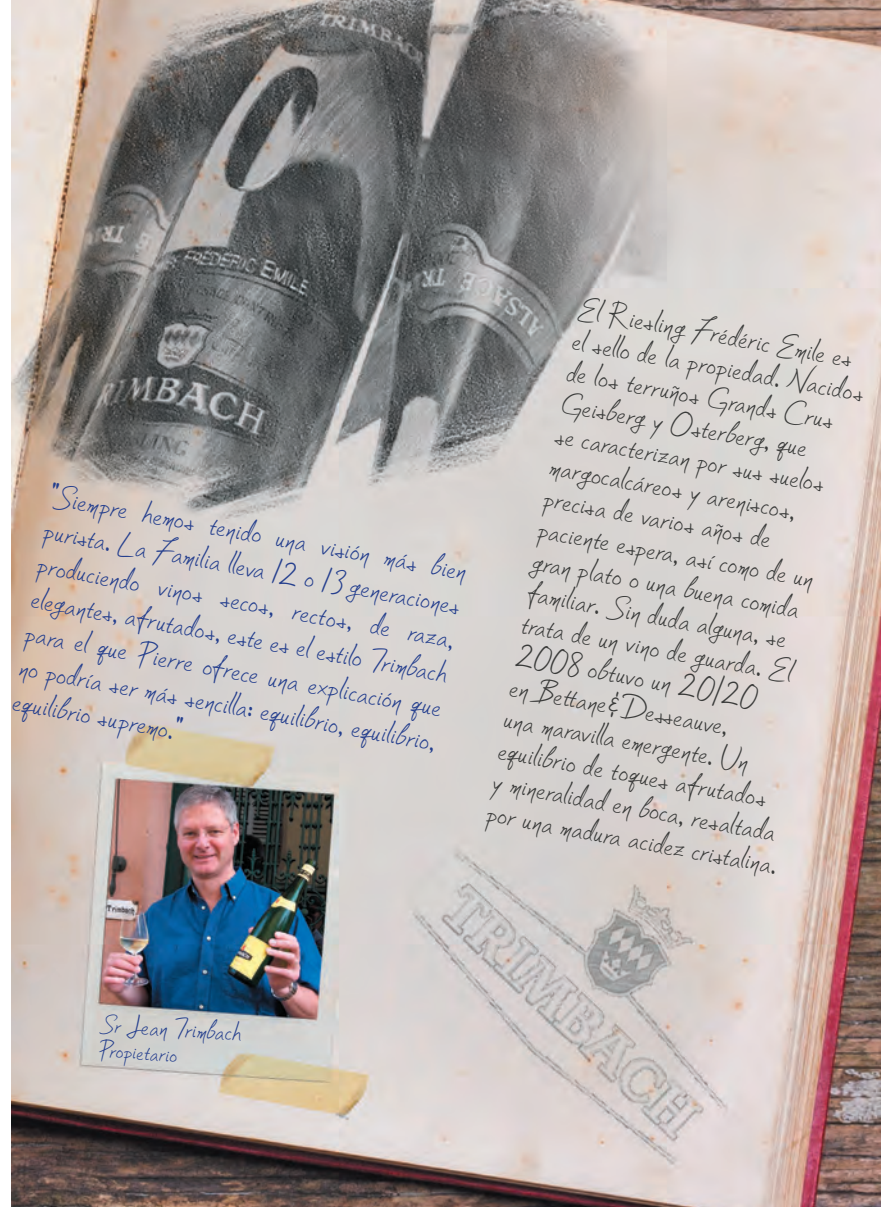 TRIMBACH
FREDERIC EMILE
TRIMBACH
ALSACE TR
"Siempre hemos tenido una visión más bien
purista. La Familia lleva 12 o 13 generaciones
produciendo vinos secos, rectos, de raza,
elegantes, afrutados, este es el estilo Trimbach
para el que Pierre ofrece una explicación que
no podría ser más sencilla: equilibrio, equilibrio,
equilibrio supremo."
El Riesling Frédéric Emile es
el sello de la propiedad. Nacidos
de los terruños Grands Crus
Geisberg y Osterberg, que
se caracterizan por sus suelos
margocalcáreos y areniscos,
precisa de varios años de
paciente espera, así como de un
gran plato o una buena comida
familiar. Sin duda alguna, se
trata de un vino de guarda. El
2008 obtuvo un 20/20
en Bettane&Desseauve,
una maravilla emergente. Un
equilibrio de toques afrutados
y mineralidad en boca, resaltada
por una madura acidez cristalina.
Trimbach
Sr Jean Trimbach
Propietario
TRIMBACH